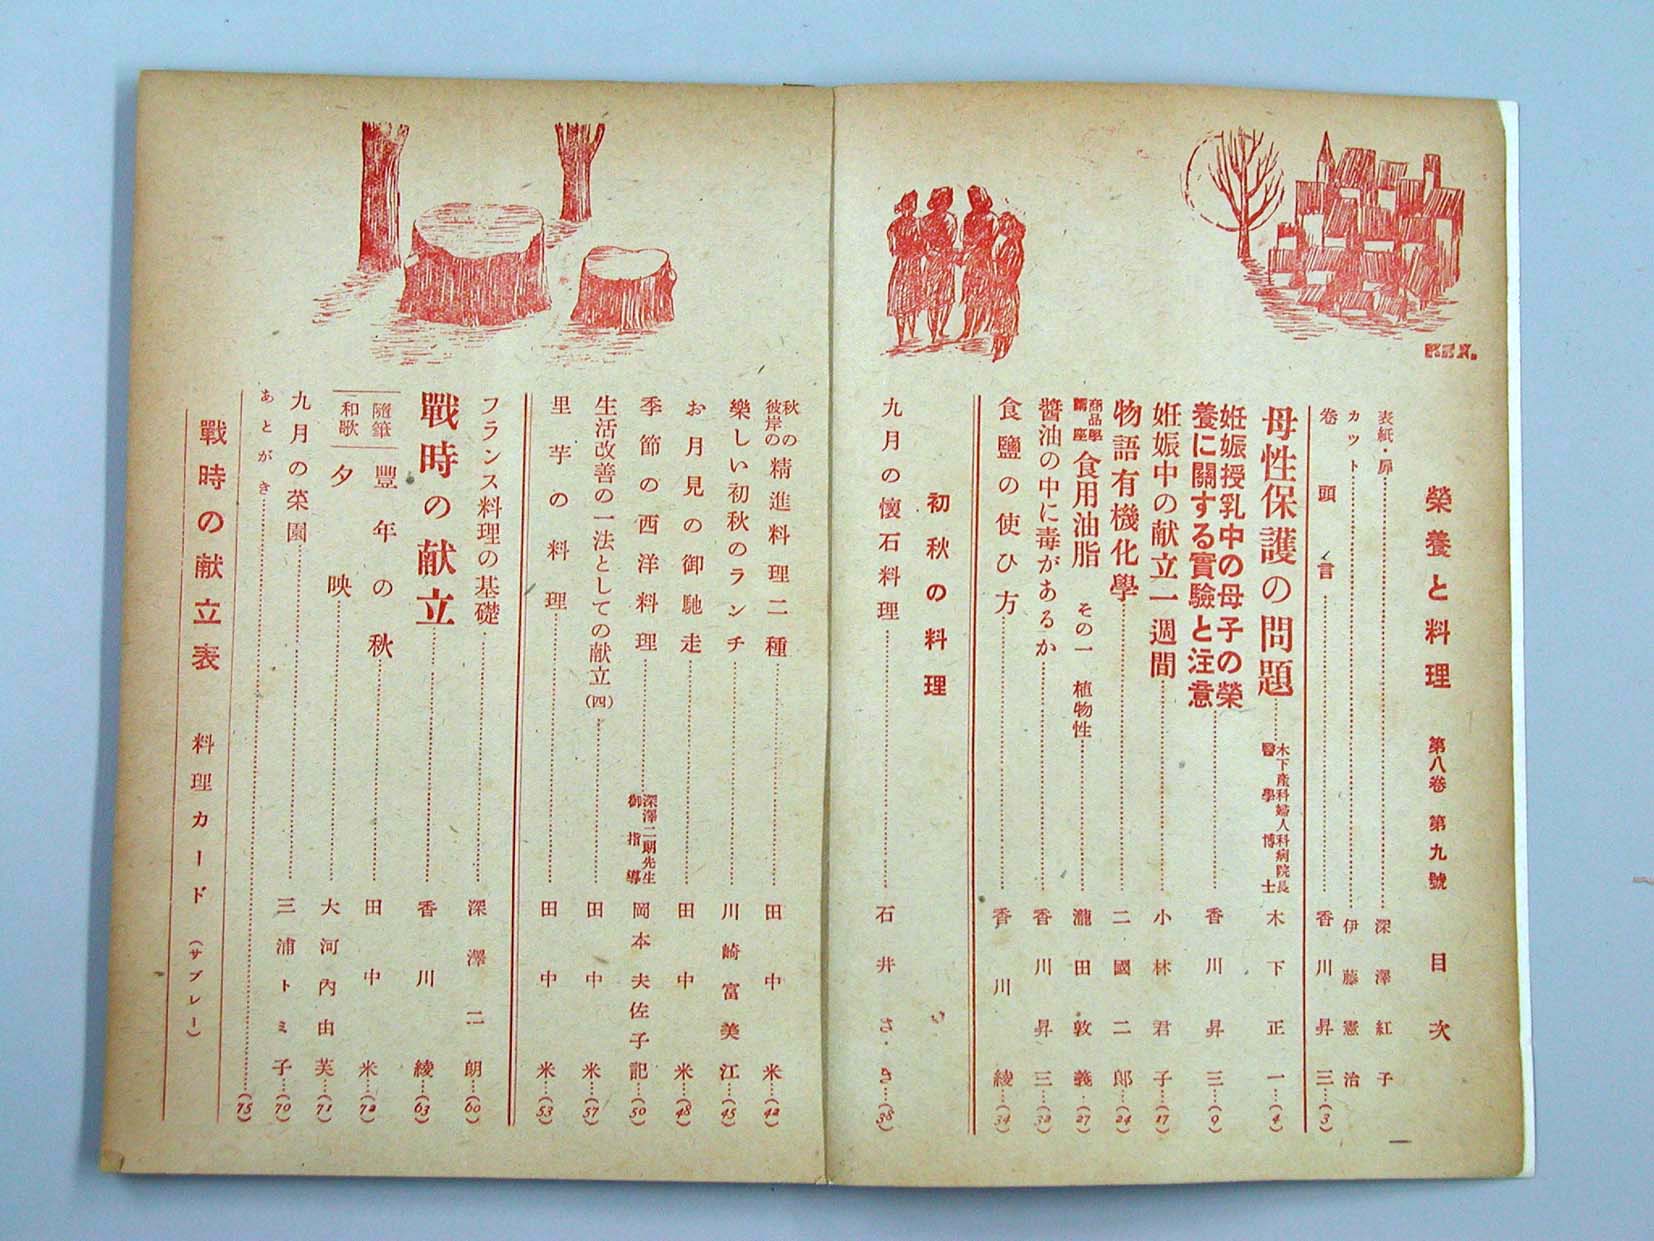 榮養と料理 第八卷 第九號 目次
表紙・扉 深澤紅子
カット 伊藤憲治
卷頭言 香川昇三…(3)
母性保護の問題 木下産科婦人科病院長 醫學博士 木下正一…(4)
妊娠授乳中の母子の榮養に關する實驗と注意 香川昇三…(9)
妊娠中の献立一週間 小林君子…(17)
物語有機化學 二國二郎…(24)
商品學講座 食用油脂 その一 植物性 瀧田敦義…(27)
醬油の中に毒があるか 香川昇三…(32)
食鹽の使ひ方 香川綾…(34)
初秋の料理
九月の懷石料理 石井さき…(38)
秋の彼岸の精進料理二種 田中米…(42)
樂しい初秋のランチ 川崎富美江…(45)
お月見の御馳走 田中米…(48)
季節の西洋料理 深澤二朗先生御指導 岡本夫佐子記…(50)
生活改善の一法としての献立(四) 田中米…(57)
里芋の料理 田中米…(53)
フランス料理の基礎 深澤二朗…(60)
戰時の献立 香川綾…(63)
隨筆 豐年の秋 田中米…(72)
和歌 夕映 大河內由芙…(71)
九月の菜園 三浦トミ子…(70)
あとがき (75)
戰時の献立表 料理カード (サブレー)